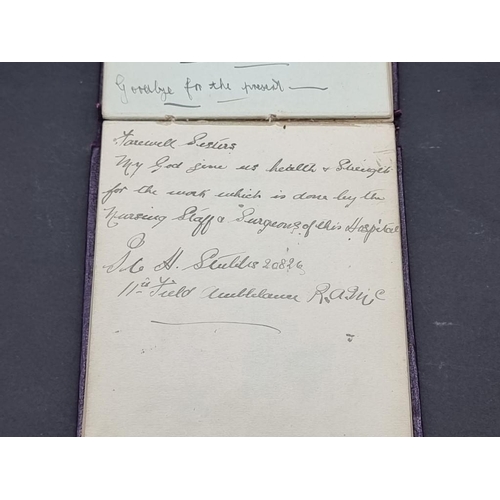 Goodbye for the present —
Farewell Sisters
My God give us health & Strength
for the work which is done by the
Nursing Staff & Surgeons of this Hospital
Pte H. Stubbs 20826
11th Field Ambulance R.A.M.C